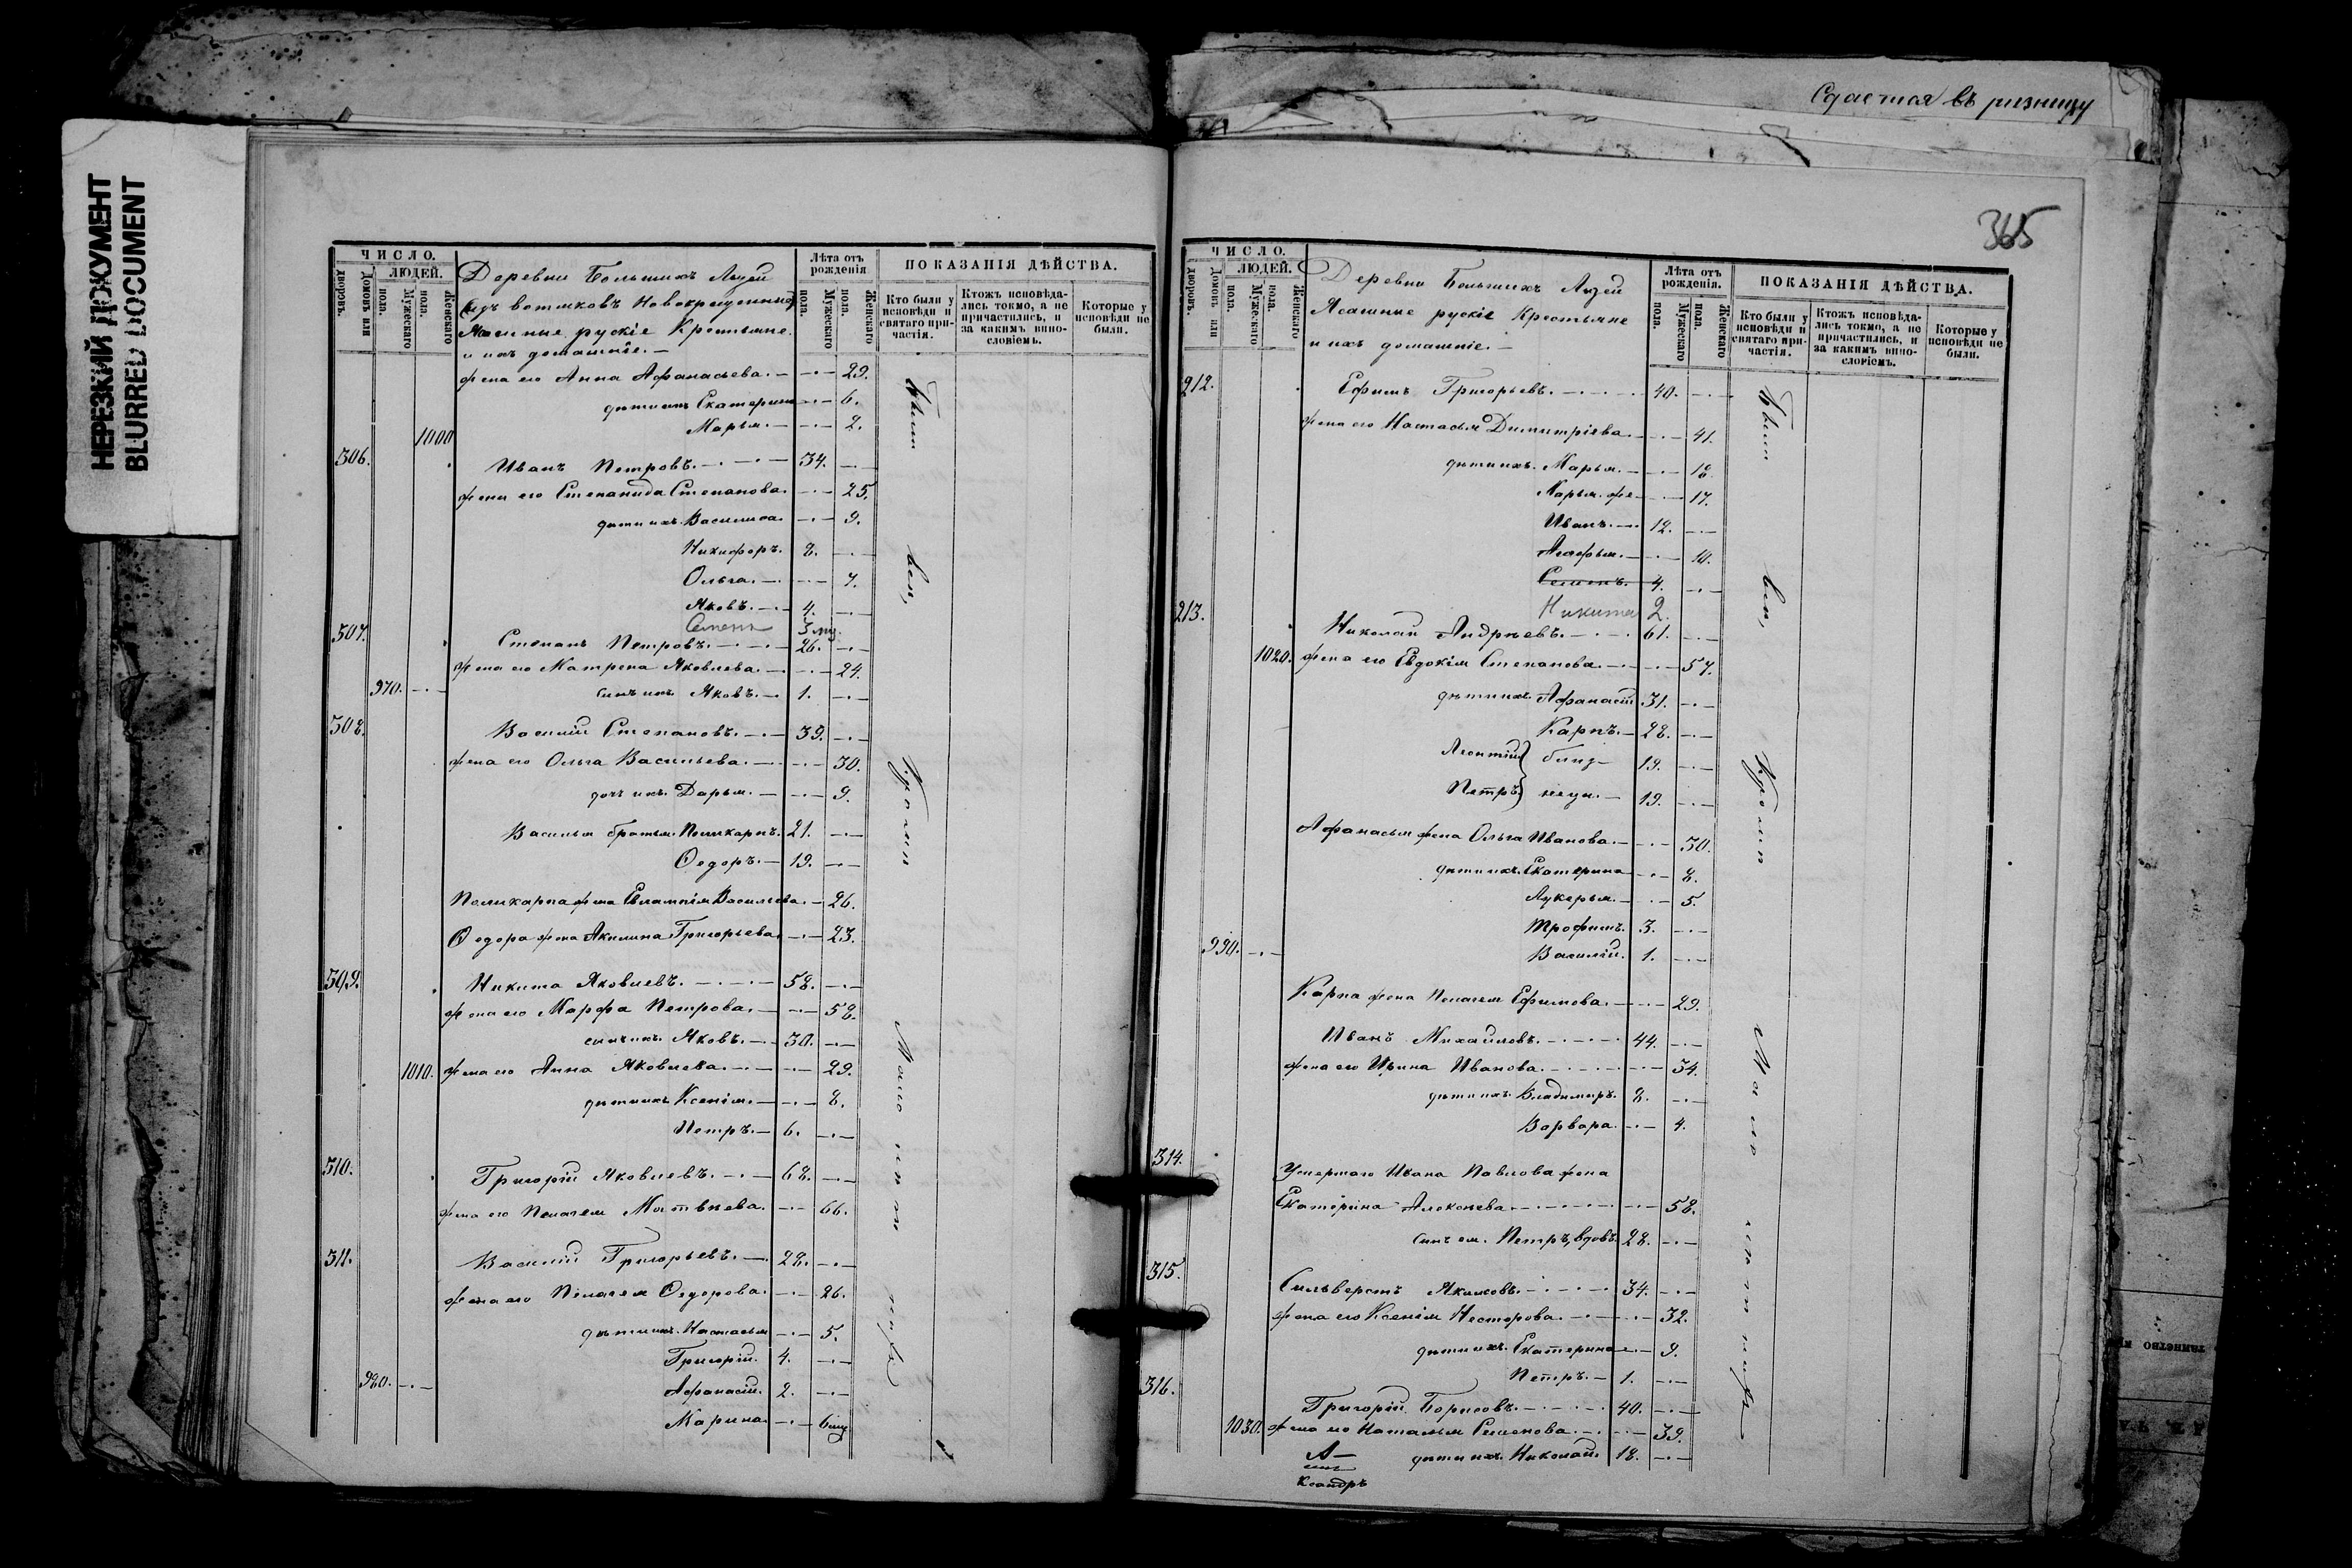 НЕРЕЗКИЙ ДОКУМЕНТ
BLURRED DOCUMENT
Сдается въ ризницу
365
ЧИСЛО.
ЛЮДЕЙ.
Дворовъ.
Домовъ или
Мужескаго пола.
Женскаго пола.
Деревни Большихъ Лызей
изъ вотяковъ Новокрещенныхъ
Ясашные рускіе Крестьяне
и ихъ домашніе. —
Лѣта отъ рожденія
Мужескаго пола.
Женскаго пола.
ПОКАЗАНІЯ ДѢЙСТВА.
Кто были у исповѣди и святаго причастія.
Ктожъ исповѣдались токмо, а не причастились, и за какимъ винословіемъ.
Которые у исповѣди не были.
жена его Анна Афанасьева. 29.
дѣти ихъ Екатерина 6.
1000 Марья. 2.
306. Иванъ Петровъ. 34.
жена его Степанида Степанова. 25.
дѣти ихъ Василиса. 9.
Никифоръ. 8.
Ольга. 7.
Яковъ. 4.
Семенъ 3 мц.
307. Степанъ Петровъ. 26.
жена его Матрена Яковлева. 24.
970. сынъ ихъ Яковъ. 1.
308. Василій Степановъ. 39.
жена его Ольга Васильева. 30.
дочь ихъ Дарья. 9.
Василья братья Поликарпъ. 21.
Ѳедоръ. 19.
Поликарпа жена Евлампія Васильева. 26.
Ѳедора жена Акилина Григорьева 23.
309. Никита Яковлевъ. 58.
жена его Марфа Петрова. 58.
сынъ ихъ Яковъ. 30.
1010. жена его Анна Яковлева. 29.
дѣти ихъ Ксенія. 8.
Петръ. 6.
310. Григорій Яковлевъ. 68.
жена его Пелагея Матвѣева. 66.
311. Василій Григорьевъ. 28.
жена его Пелагея Ѳедорова. 26.
дѣти ихъ Настасья 5.
Григорій. 4.
980. Афанасій. 2.
Марина 6 мц
Были
всп,
Кромѣ
Мало
ЧИСЛО.
ЛЮДЕЙ.
Дворовъ.
Домовъ или
Мужескаго пола.
Женскаго пола.
Деревни Большихъ Лызей
Ясашные рускіе Крестьяне
и ихъ домашніе. —
Лѣта отъ рожденія.
Мужескаго пола.
Женскаго пола.
ПОКАЗАНІЯ ДѢЙСТВА.
Кто были у исповѣди и святаго причастія.
Ктожъ исповѣдались токмо, а не причастились, и за какимъ винословіемъ.
Которые у исповѣди не были.
312. Ефимъ Григорьевъ. 40.
жена его Настасья Димитріева 41.
дѣти ихъ Марья. 18.
Марья 17.
Иванъ. 12.
Агафья. 10.
Семенъ. 4.
Никита 2.
313. Николай Андрѣевъ. 61.
1020. жена его Евдокія Степанова. 57.
дѣти ихъ Афанасій 31.
Карпъ. 28.
Леонтій 19.
Петръ 19.
Афанасья жена Ольга Иванова. 30.
дѣти ихъ Екатерина 8.
Лукерья. 5.
Трофимъ. 3.
990. Василій. 1.
Карпа жена Пелагея Ефимова. 29.
Иванъ Михайловъ. 44.
жена его Ирина Иванова. 34.
дѣти ихъ Владимиръ. 8.
Варвара. 4.
314. Умершаго Ивана Павлова жена
Екатерина Алексѣева 58.
сынъ ея Петръ, вдовъ 28.
315. Сильверстъ Якимовъ. 34.
жена его Ксенія Нестерова. 32.
дѣти ихъ Екатерина 9.
Петръ. 1.
316. Григорій Борисовъ. 40.
1030. жена его Наталья Семенова. 39.
дѣти ихъ Николай. 18.
Были
всп,
Кромѣ
Мало